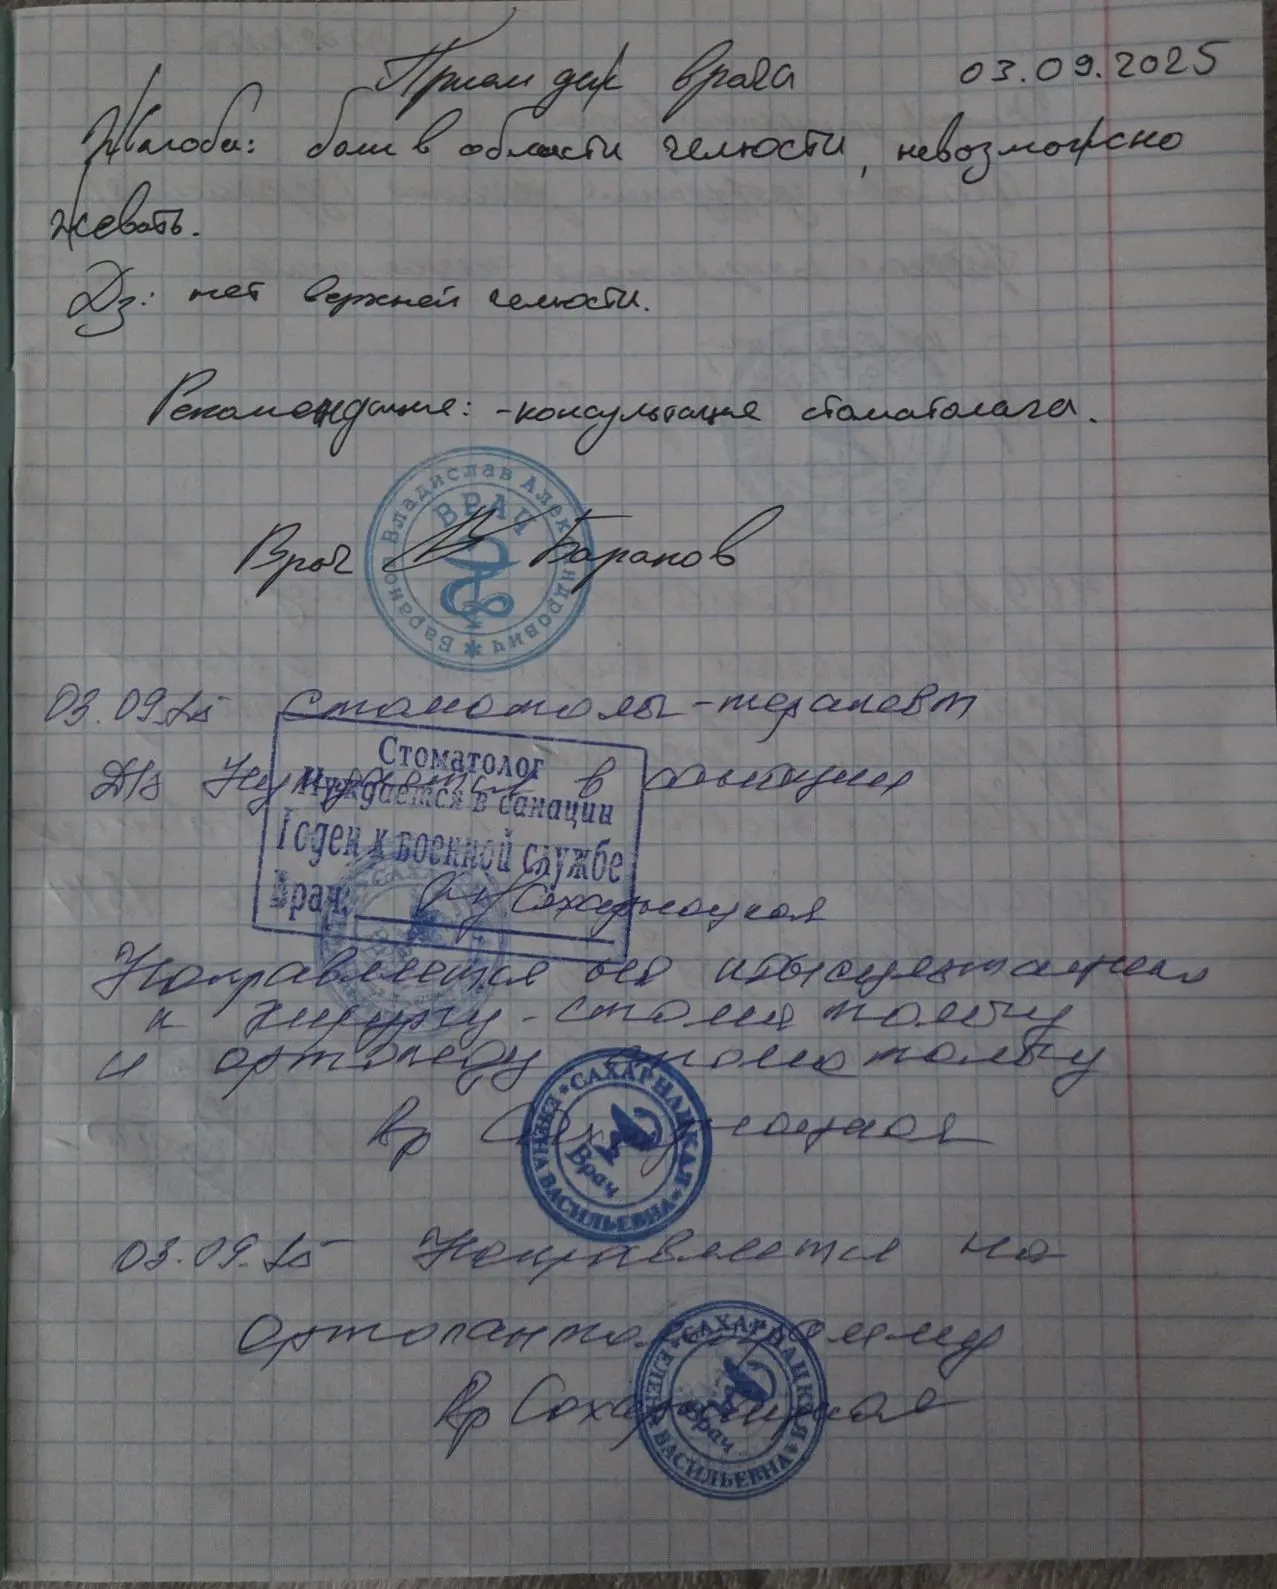 Прием деж врача 03.09.2025
Жалобы: боли в области челюсти, невозможно
жевать.
Дз: нет верхней челюсти.
Рекомендация: -консультация стоматолога.
Баранов Владислав Александрович * ВРАЧ
Врач Баранов
03.09.25 Стоматолог-терапевт
Стоматолог
D/s Нуждается в санации
Нуждается в санации
Годен к военной службе
Врач: Сахарнацкая
Направляется на
к хирургу-стоматологу
и ортопеду стоматологу
Вр Сахарнацкая
* САХАРНАЦКАЯ * ЕЛЕНА ВАСИЛЬЕВНА Врач
03.09.25 Направляется на
ортопантомограмму
Вр Сахарнацкая
* САХАРНАЦКАЯ * ЕЛЕНА ВАСИЛЬЕВНА Врач